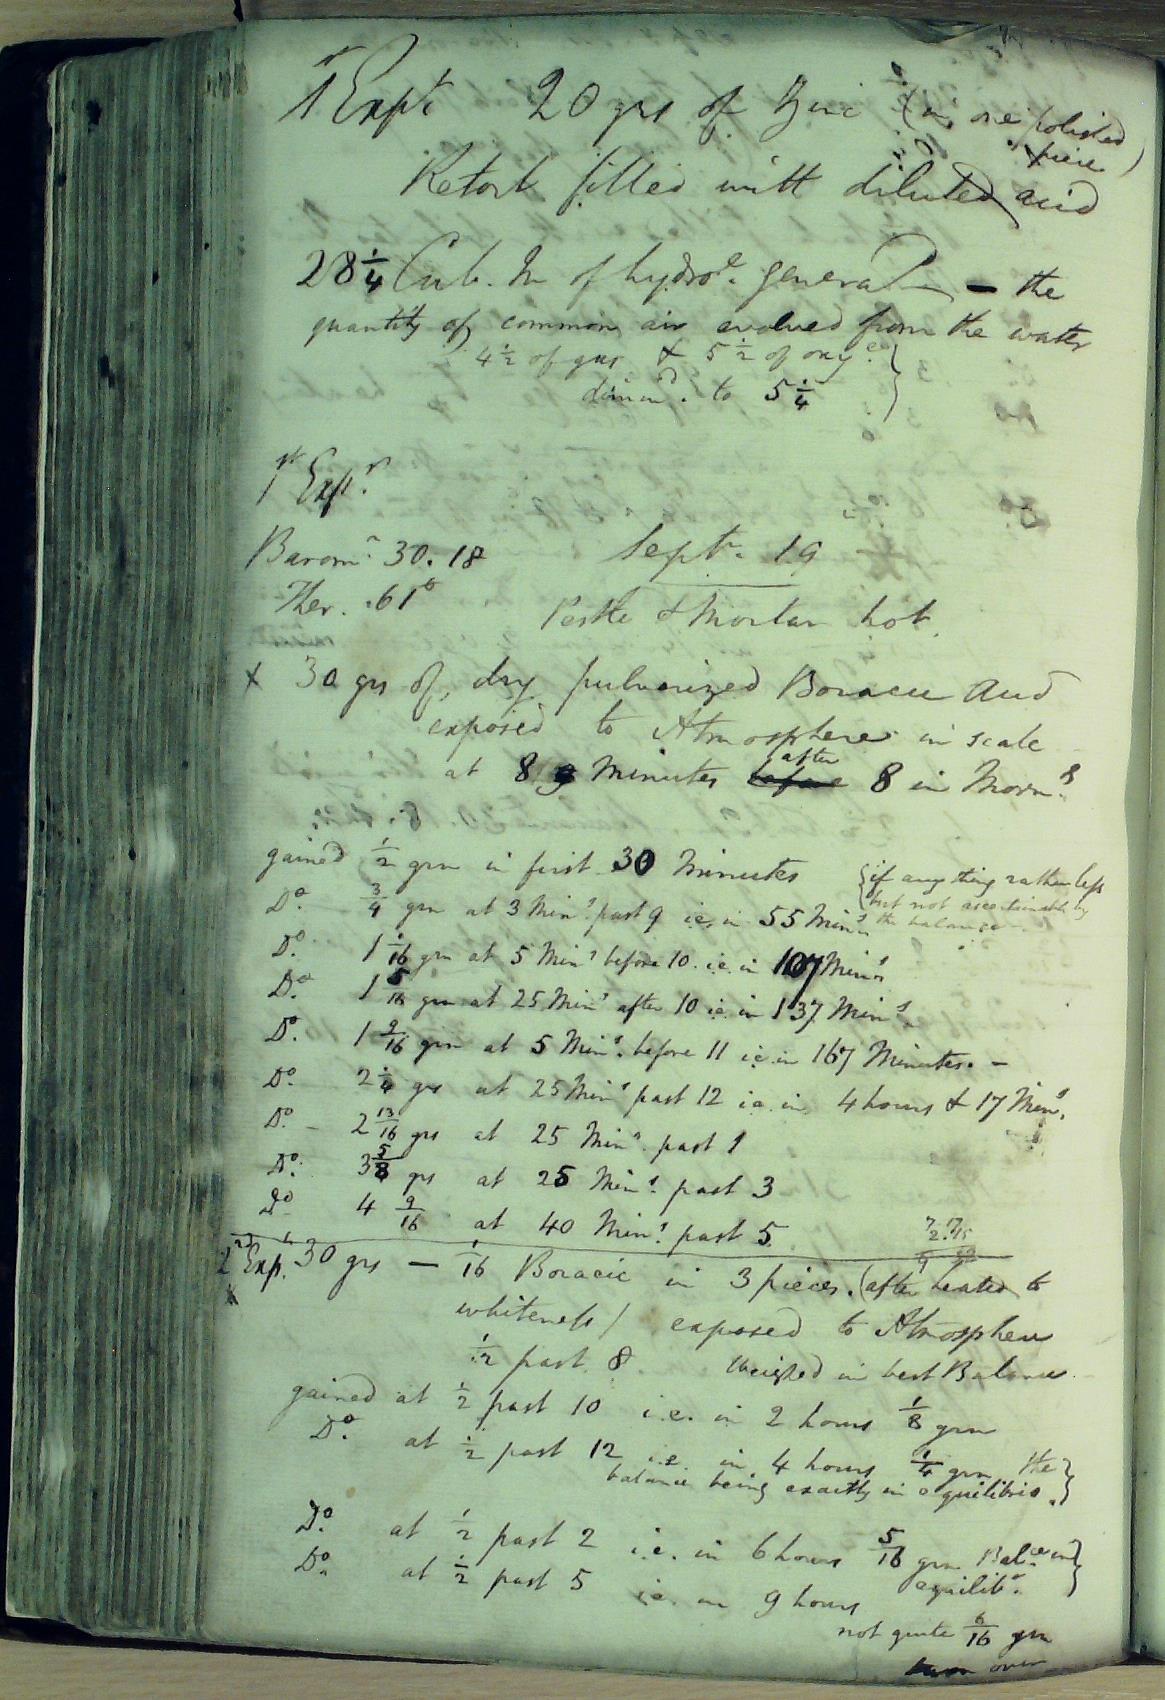 1 Expt. 20 grs of Zinc (in one polished
piece)
Retort filled with diluted acid
28 1/4 Cub. In of hydroe. generated — the
quantity of common air evolved from the water
4 1/2 of gas & 5 1/2 of oxye. }
dimind. to 5 1/4
1st Expt.
Baromr. 30.18 Septr. 19
Ther. 61°
Pestle & Mortar hot
x 30 grs of dry pulverized Boracic Acid
exposed to Atmosphere in scale
at 8 Minutes before after 8 in Morng.
gained 1/2 grn in first 30 Minutes { if any thing rather less
but not ascertainable by
the balance
Do. 3/4 grn at 3 Mins. past 9 i.e. in 55 Mins.
Do. 1 1/16 grn at 5 Mins before 10. i.e. in 107 Mins.
Do. 1 5/16 grn at 25 Mins after 10 i.e. in 137 Mins.
Do. 1 9/16 grn at 5 Mins. before 11 i.e. in 167 Minutes. —
Do. 2 1/4 grs at 25 Mins past 12 i.e. in 4 hours & 17 Mins.
Do. — 2 13/16 grs at 25 Mins. past 1
Do. 3 5/8 grs at 25 Mins. past 3
Do 4 9/16 at 40 Mins. past 5
2nd Expt. 30 grs — 1/16 Boracic in 3 pieces. (after heated to
whiteness) exposed to Atmosphere
1/2 past 8 Weighed in best Balance
gained at 1/2 past 10 i.e. in 2 hours 1/8 grn
Do. at 1/2 past 12 i.e. in 4 hours 1/4 grn the }
balance being exactly in equilibrio. }
Do. at 1/2 past 2 i.e. in 6 hours 5/16 grn Balce. in }
equilibo. }
Do. at 1/2 past 5 i.e. in 9 hours
not quite 6/16 grn
turn over